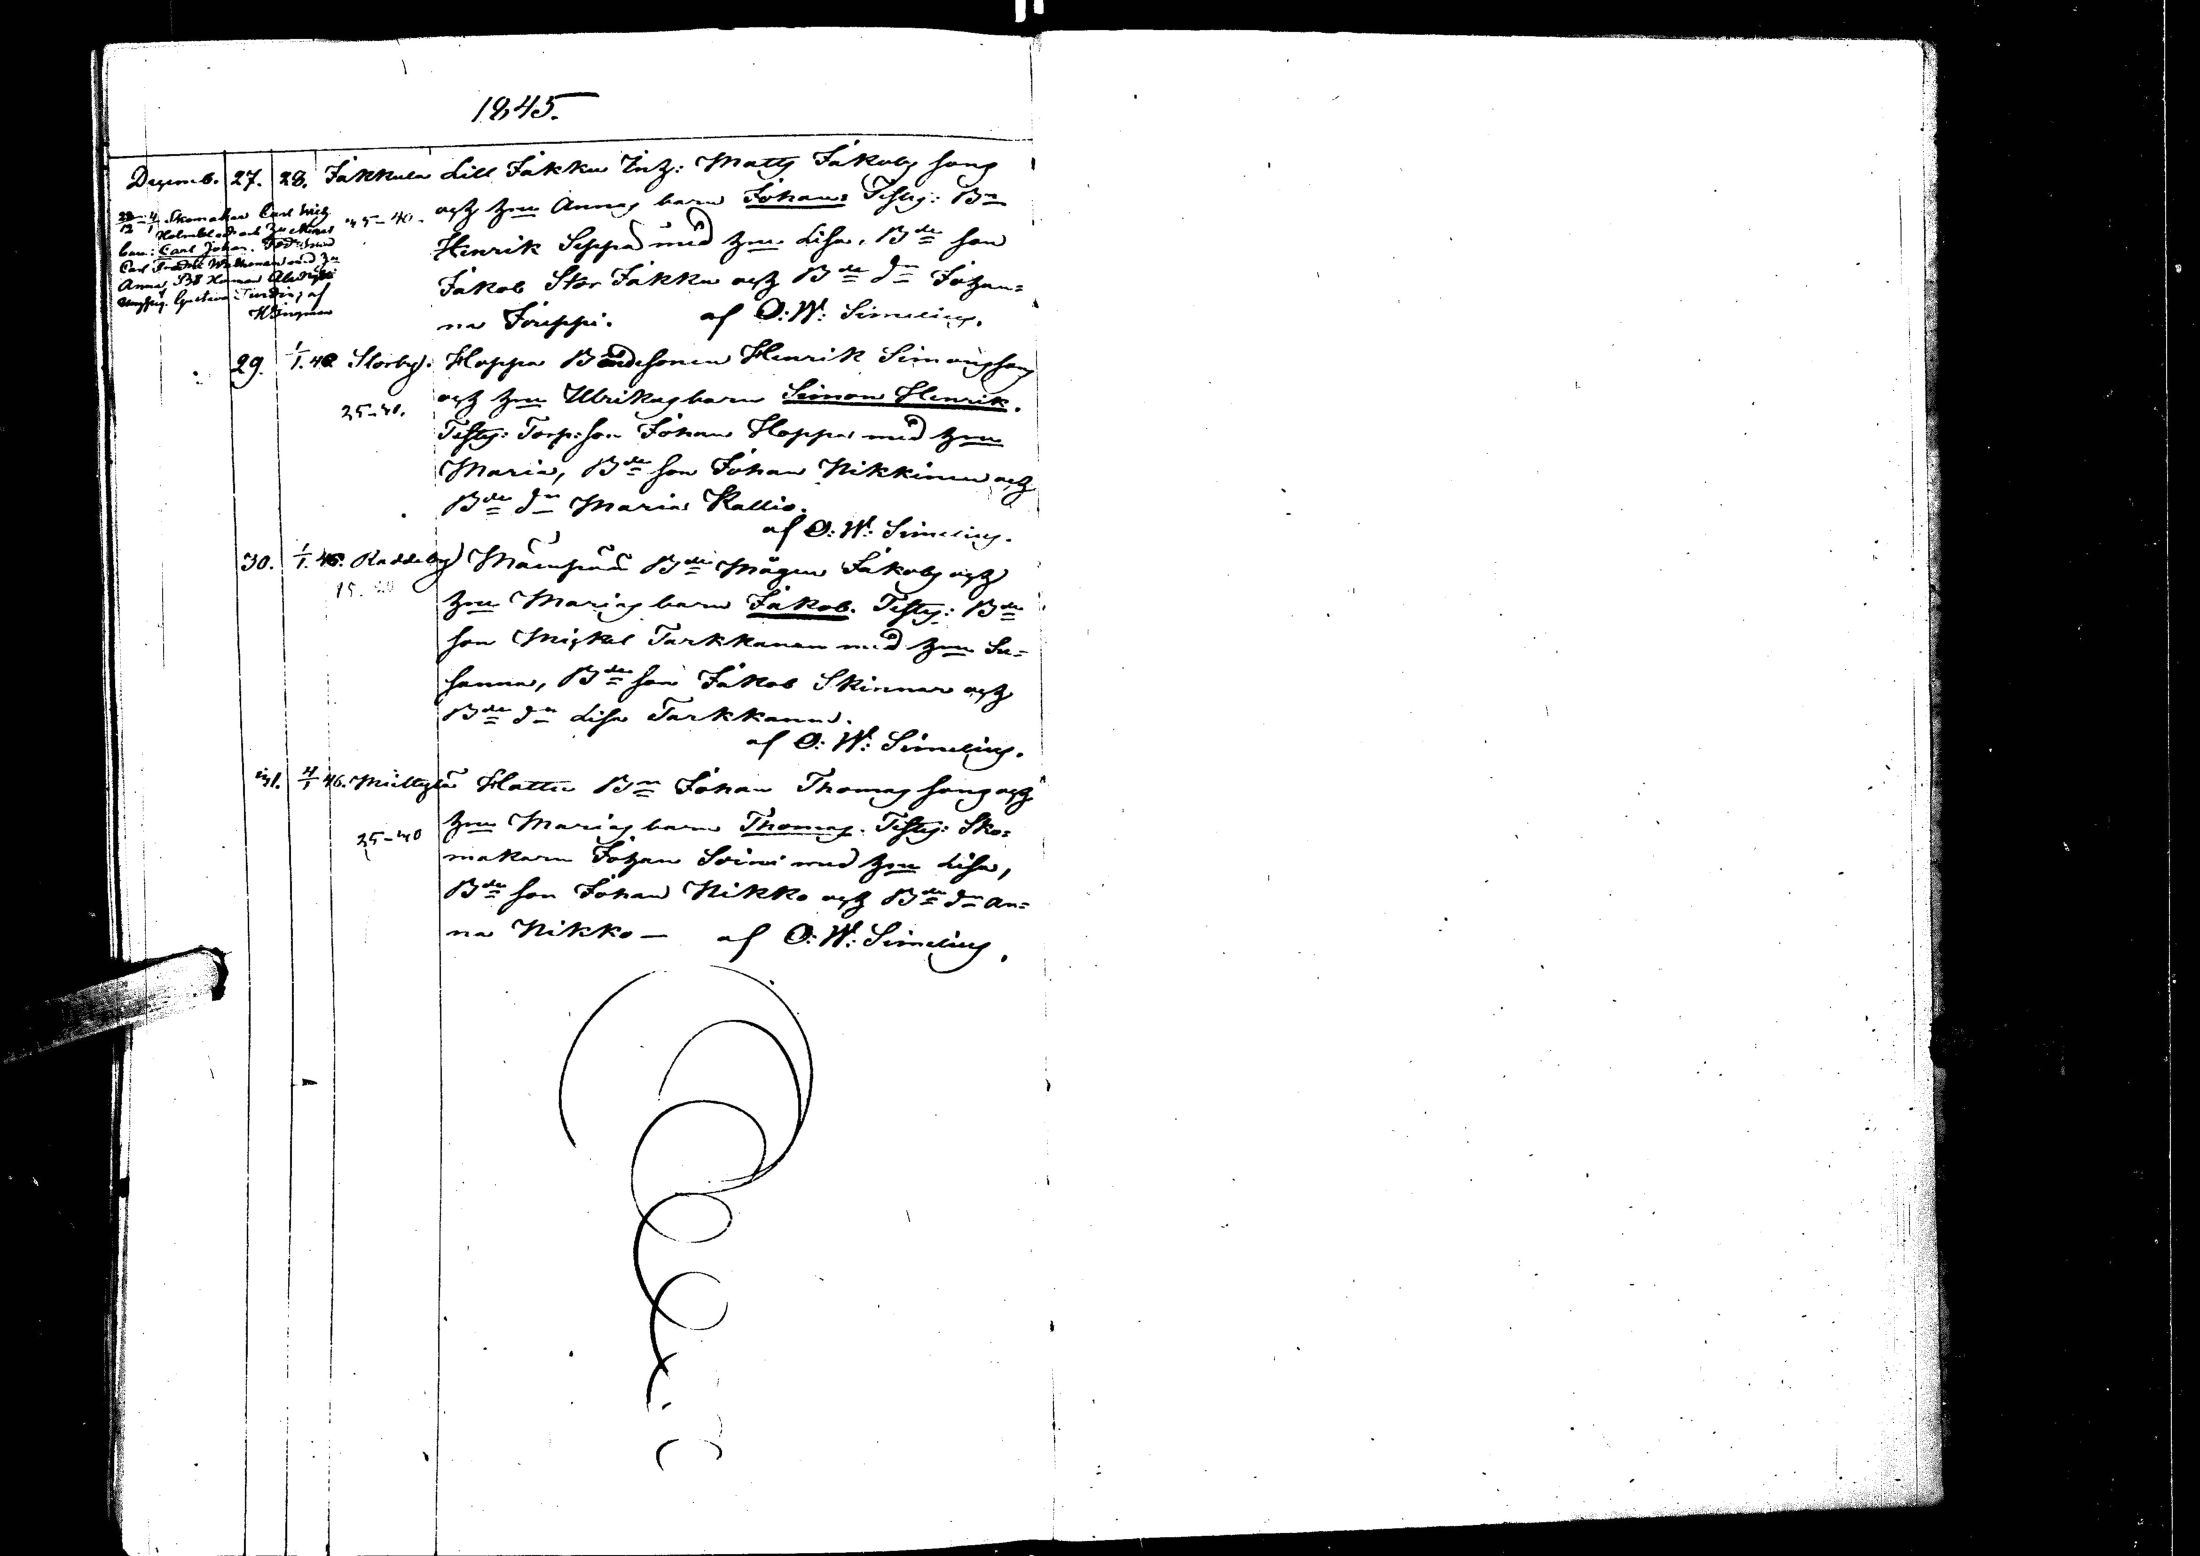 1845.
Decemb. 27. 28. Jakkula Lill Jakku Inh: Matts Jakobs sons
och hu Annas barn Johan: Test: Bn
25-40.
Henrik Seppä med hu Lisa, Bde son
Jakob Stor Jakku och Bde dr Johan=
na Jouppi. af O: W: Simelius.
Skomakar Carl
Holmbl och hu
barn: Carl Johan.
Carl Fredr med hu
Anna,
Gustava af
29. 1/1. 46 Storby: Hoppa Bondesonen Henrik Simonsson
och hu Ulrikas barn Simon Henrik.
25-40.
Test: Torp: son Johan Hoppa med hu
Maria, Bde son Johan Nikkinen och
Bde dr Maria Kallio.
af O: W: Simelius.
30. 1/1. 46. Kaddeby Mäenpää Bde Mågen Jakobs och
15.
hu Marias barn Jakob. Test: Bde
son Michel Tarkkanen med hu Su=
sanna, Bde son Jakob Skinnar och
Bde dr Lisa Tarkkanen.
af O: W: Simelius.
31. 4/1 46. Hatta Bn Johan Thomas sons och
25-40
hu Marias barn Thomas. Test: Sko=
makaren Johan Soini med hu Lisa,
Bde son Johan Nikko och Bde dr An=
na Nikko — af O: W: Simelius.